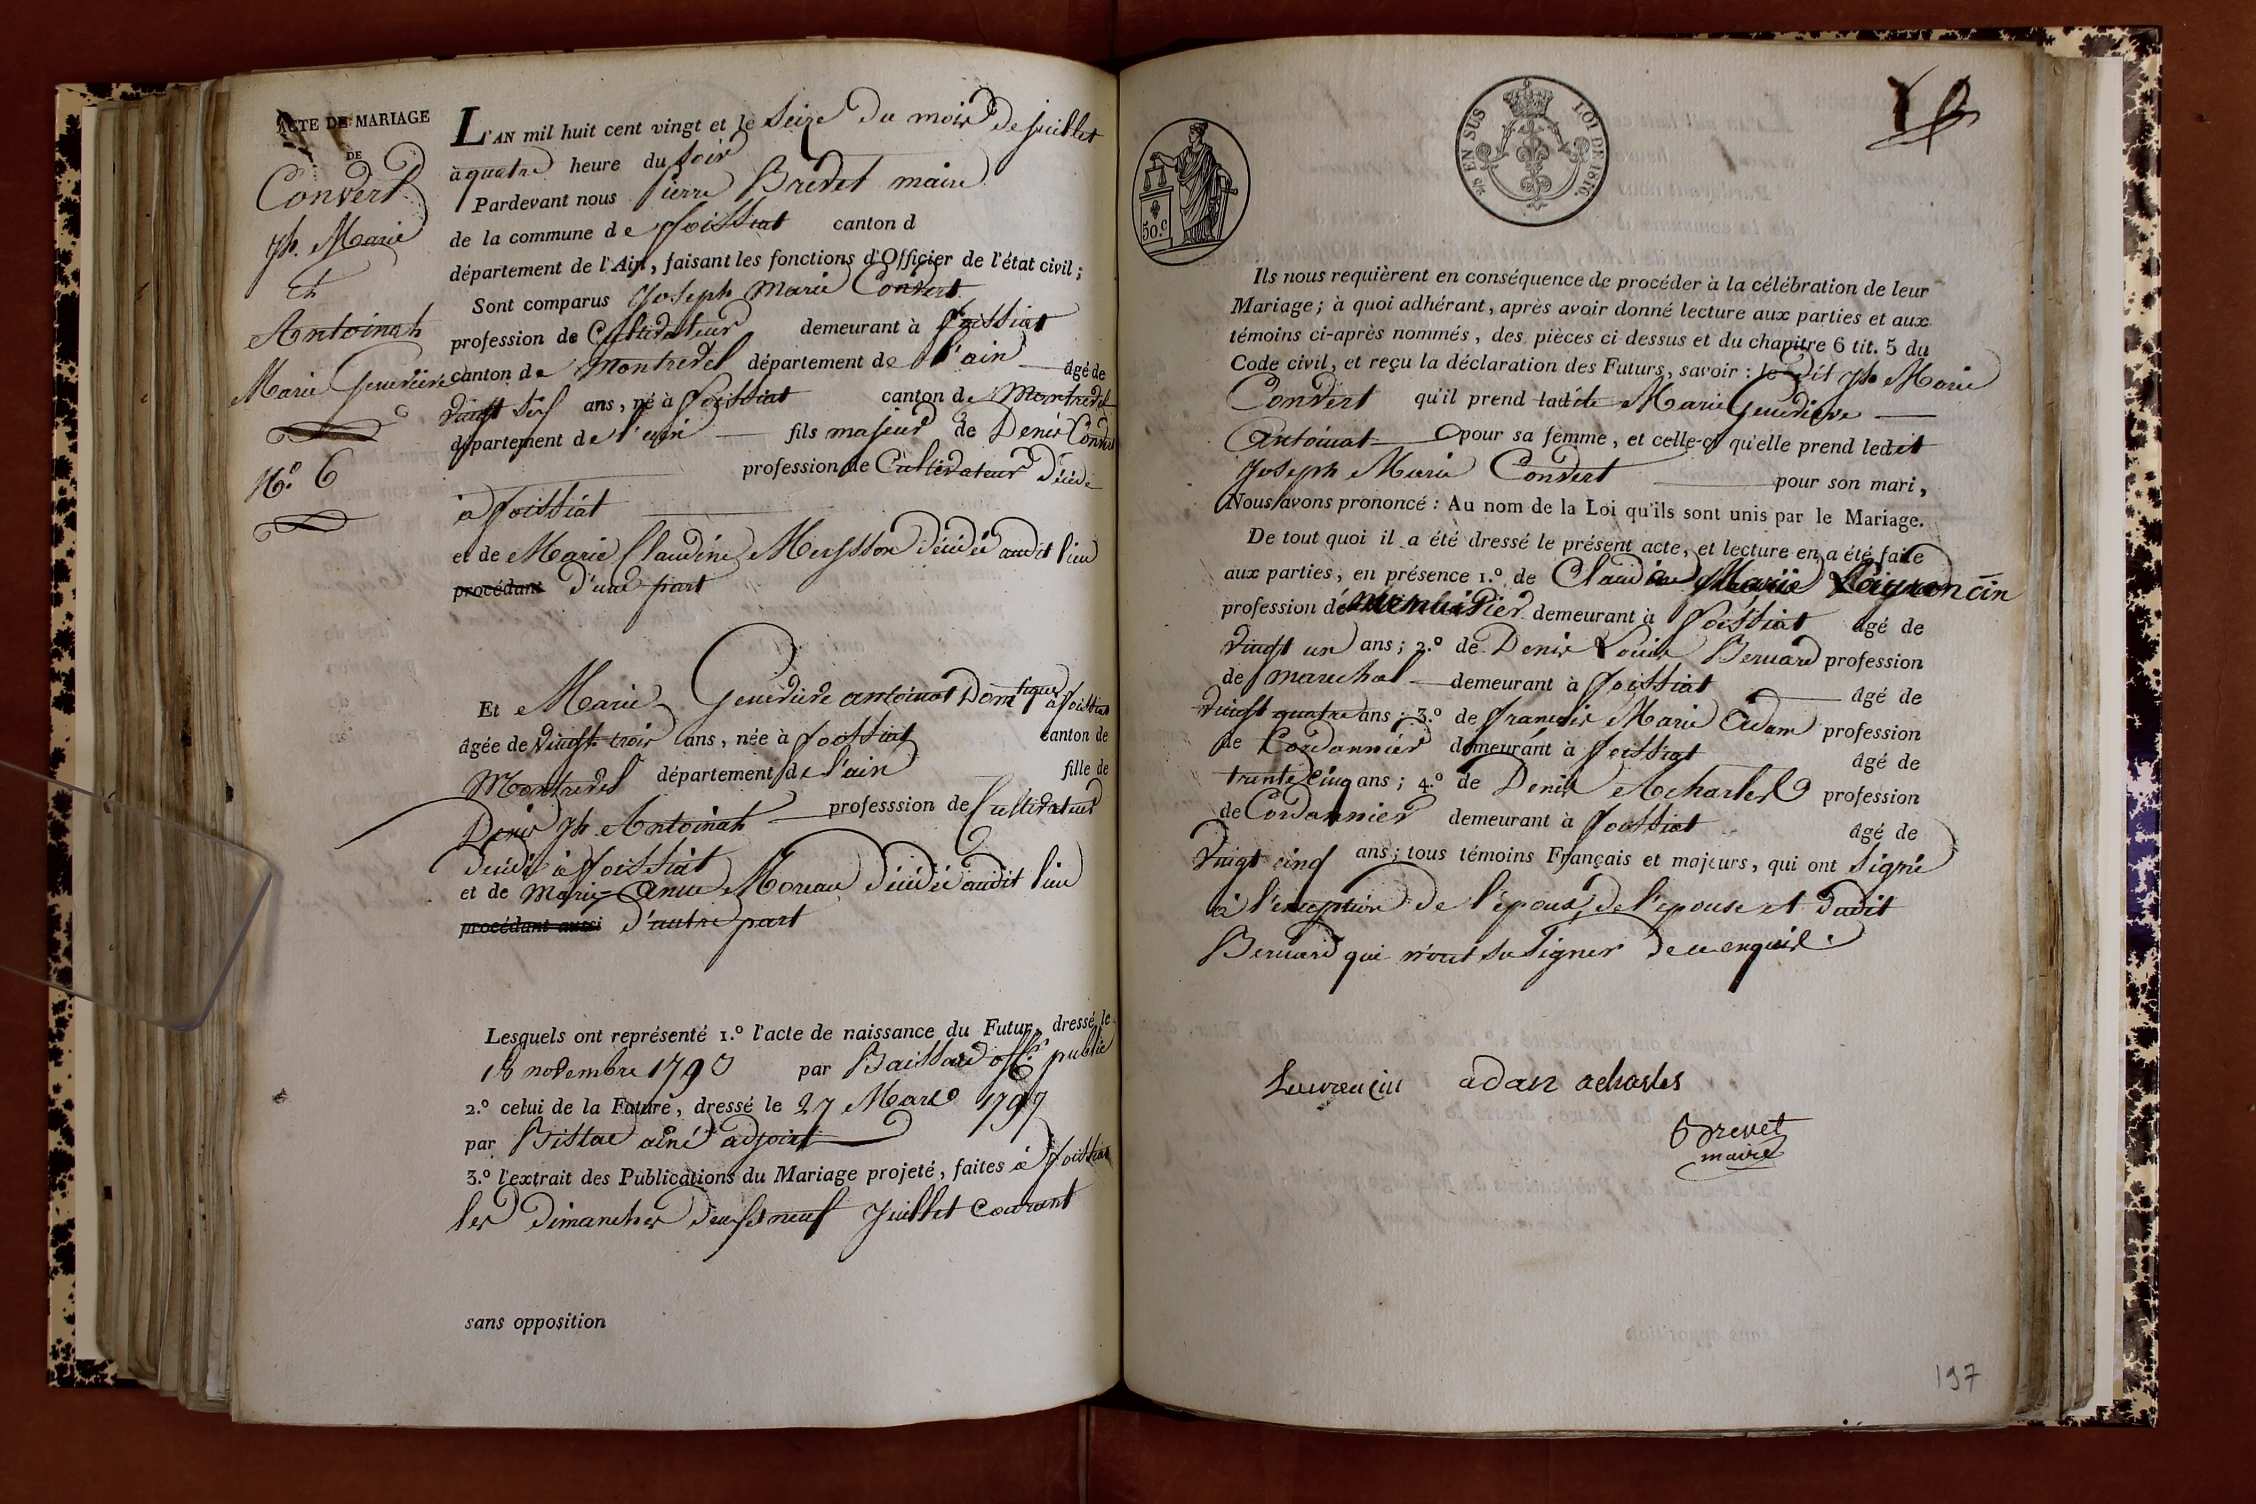 ACTE DE MARIAGE
DE
Convert
jh. Marie
Et
Antoinat
Marie Genevieve
N.o 6
L'AN mil huit cent vingt et le Seize du mois de juillet
à quatre heure du soir
Pardevant nous Pierre Brevet maire
de la commune de foissiat canton d
département de l'Ain, faisant les fonctions d'Officier de l'état civil;
Sont comparus Joseph Marie Convert
profession de Cultivateur demeurant à foissiat
canton de Montrevel département de l'ain âgé de
vingt six ans, né à foissiat canton de Montrevel
département de l'ain fils majeur de Denis Convert
profession de Cultivateur décédé
à foissiat
et de Marie Claudine décédée audit lieu
procédant d'une part
Et Marie Genevieve antoinat Domestique à foissiat
âgée de vingt trois ans, née à foissiat canton de
Montrevel département de l'ain fille de
Denis jh Antoinat professsion de Cultivateur
décédé à foissiat
et de Marie-Anne Moreau décédée audit lieu
procédant aussi d'autre part
Lesquels ont représenté 1.o l'acte de naissance du Futur, dressé le
18 novembre 1793 par off.er public
2.o celui de la Future, dressé le 27 Mars 1797
par ainé adjoint
3.o l'extrait des Publications du Mariage projeté, faites à foissiat
les dimanches deux et neuf Juillet courant
sans opposition
50.c
EN SUS
LOI DE 1816.
Ils nous requièrent en conséquence de procéder à la célébration de leur
Mariage; à quoi adhérant, après avoir donné lecture aux parties et aux
témoins ci-après nommés, des pièces ci-dessus et du chapitre 6 tit. 5 du
Code civil, et reçu la déclaration des Futurs, savoir: le dit jh Marie
Convert qu'il prend ladite Marie Genevieve
Antoinat pour sa femme, et celle-ci qu'elle prend ledit
Joseph Marie Convert pour son mari,
Nous avons prononcé: Au nom de la Loi qu'ils sont unis par le Mariage.
De tout quoi il a été dressé le présent acte, et lecture en a été faite
aux parties, en présence 1.o de Claude Marie Lauroncin
profession de demeurant à foissiat âgé de
vingt un ans; 2.o de Denis Louis Bernard profession
de marechal demeurant à foissiat âgé de
vingt quatre ans; 3.o de françois Marie Adam profession
de Cordonnier demeurant à foissiat âgé de
trente cinq ans; 4.o de Denis Acharles profession
de Cordonnier demeurant à foissiat âgé de
vingt cinq ans; tous témoins Français et majeurs, qui ont signé
à l'exception de l'époux, de l'épouse et dudit
Bernard qui n'ont su signer de ce enquis.
Lauroncin adan acharles
Brevet
maire
197